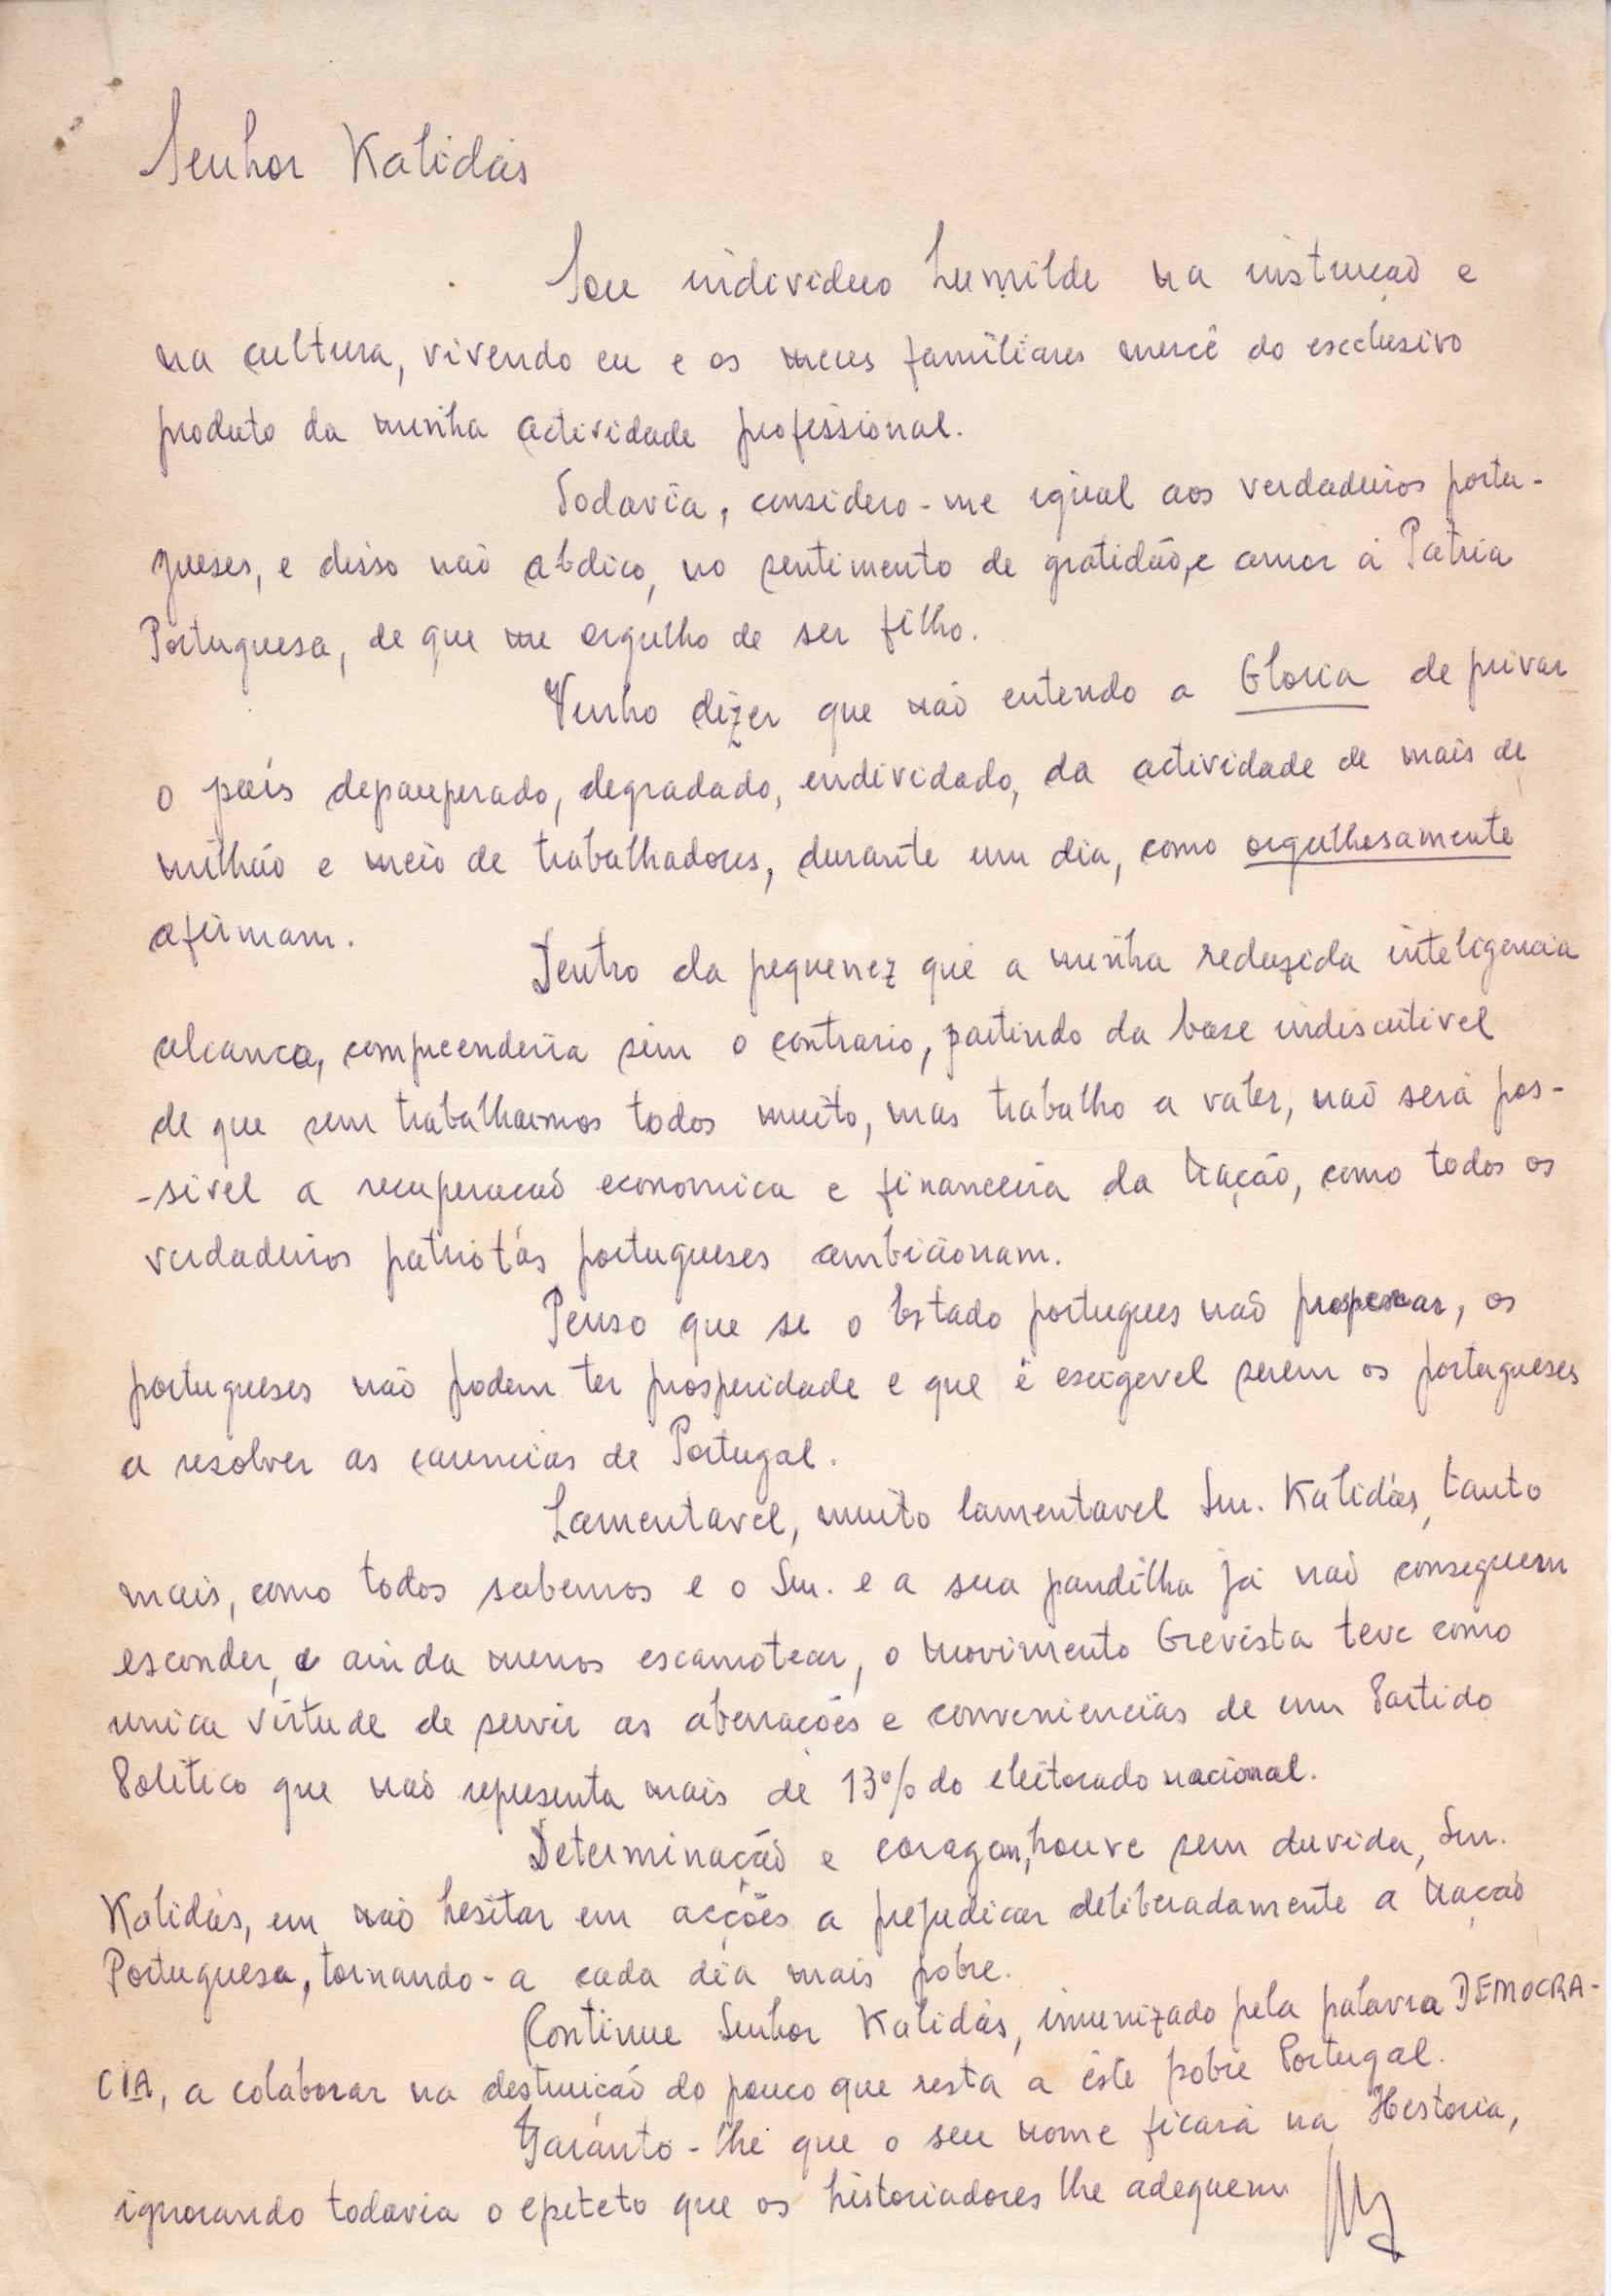 Senhor Kalidás
Sou individuo humilde na instrução e
na cultura, vivendo eu e os meus familiares mercê do esclusivo
produto da minha actividade profissional.
Todavia, considero-me igual aos verdadeiros portu-
gueses, e disso não abdico, no sentimento de gratidão, e amor á Patria
Portuguesa, de que me orgulho de ser filho.
Venho dizer que não entendo a Gloria de privar
o país depauperado, degradado, endividado, da actividade de mais de
milhão e meio de trabalhadores, durante um dia, como orgulhosamente
afirmam.
Dentro da pequenez que a minha reduzida inteligencia
alcança, compreenderia sim o contrario, partindo da base indiscutivel
de que sem trabalharmos todos muito, mas trabalho a valer, não será pos-
-sivel a recuperação economica e financeira da Nação, como todos os
verdadeiros patriotás portugueses ambicionam.
Penso que se o Estado portugues não prosperar, os
portugueses não podem ter prosperidade e que é esigevel serem os portugueses
a resolver as carencias de Portugal.
Lamentavel, muito lamentavel Snr. Kalidás, tanto
mais, como todos sabemos e o Snr. e a sua pandilha já não conseguem
esconder, e ainda menos escamotear, o movimento Grevista teve como
unica virtude de servir as aberrações e conveniencias de um Partido
Politico que não representa mais de 13% do eleitorado nacional.
Determinação e coragem, houve sem duvida, Snr.
Kalidás, em não hesitar em acções a prejudicar deliberadamente a Nação
Portuguesa, tornando-a cada dia mais pobre.
Continue Senhor Kalidás, imunizado pela palavra DEMOCRA-
CIA, a colaborar na destruição do pouco que resta a este pobre Portugal.
Garanto-lhe que o seu nome ficará na Historia,
ignorando todavia o epiteto que os historiadores lhe adequem